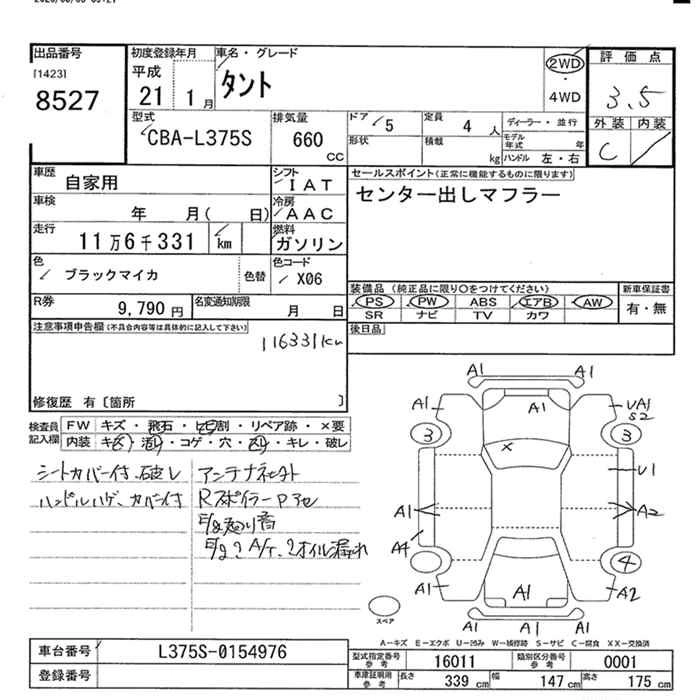 出品番号
[1423]
8527
初度登録年月
平成
21 1月
車名・グレード
タント
2WD
・
4WD
評価点
3.5
外装 内装
C
型式
CBA-L375S
排気量
660
CC
ドア
5
定員
4人
形状
積載
kg
ディーラー・並行
モデル年式 年
ハンドル 左・右
車歴
自家用
シフト
IAT
車検
年 月( 日)
冷房
AAC
走行
11万6千331 km
燃料
ガソリン
色
ブラックマイカ
色替
色コード
X06
R券
9,790円
名変通知期限
月 日
セールスポイント(正常に機能するものに限ります)
センター出しマフラー
装備品 (純正品に限り○をつけてください)
PS PW ABS エアB AW
SR ナビ TV カワ
新車保証書
有・無
後日品
注意事項申告欄(不具合内容等は具体的に記入して下さい)
116331km
修復歴 有〔箇所 〕
検査員
記入欄
FW キズ・飛石・ヒビ割・リペア跡・×要
内装 キズ・汚レ・コゲ・穴・スレ・キレ・破レ
シートカバー付.破レ
ハンドルハゲ、カバー付
アンテナ欠
Rスポイラー
E/g 音
E/g A/T オイル漏れ
A1 A1
A1 A1 UA1
S2
3 3
X
U1
A1 A2
A4
4
A1 A1 A2
A1 A1 A1
スペア
A-キズ E-エクボ U-凹み W-補修跡 S-サビ C-腐食 XX-交換済
車台番号
L375S-0154976
登録番号
型式指定番号
参考
16011
類別区分番号
参考
0001
車庫証明用
参考
長さ 339cm 幅 147cm 高さ 175cm